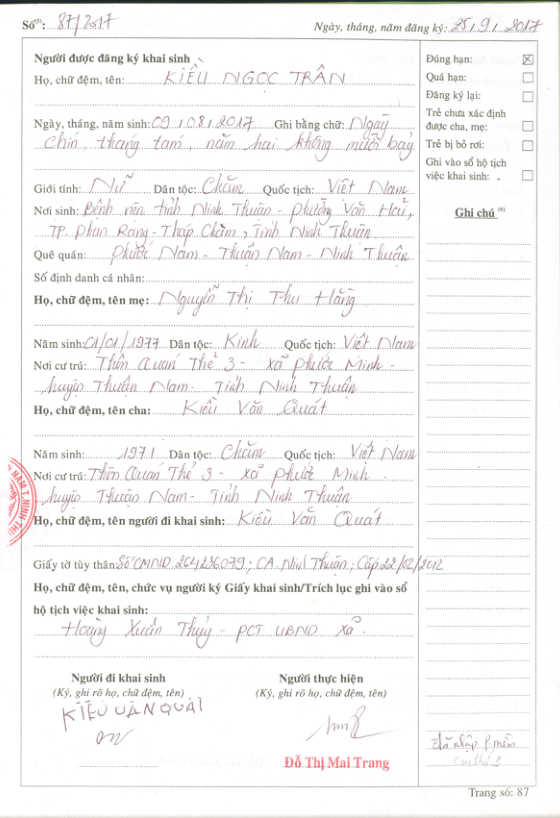 Số⁽⁵⁾: 87/2017 Ngày, tháng, năm đăng ký: 25/9/2017
Người được đăng ký khai sinh
Họ, chữ đệm, tên: KIỀU NGỌC TRÂN
Ngày, tháng, năm sinh: 09/08/2017 Ghi bằng chữ: Ngày
chín, tháng tám, năm hai không mười bảy
Giới tính: Nữ Dân tộc: Chăm Quốc tịch: Việt Nam
Nơi sinh: Bệnh viện tỉnh Ninh Thuận - phường Văn Hải,
TP. Phan Rang - Tháp Chàm, Tỉnh Ninh Thuận
Quê quán: Phước Nam - Thuận Nam - Ninh Thuận
Số định danh cá nhân:
Họ, chữ đệm, tên mẹ: Nguyễn Thị Thu Hằng
Năm sinh: 01/01/1977 Dân tộc: Kinh Quốc tịch: Việt Nam
Nơi cư trú: Thôn Quán Thẻ 3 - xã Phước Minh -
huyện Thuận Nam - Tỉnh Ninh Thuận
Họ, chữ đệm, tên cha: Kiều Văn Quát
Năm sinh: 1971 Dân tộc: Chăm Quốc tịch: Việt Nam
Nơi cư trú: Thôn Quán Thẻ 3 - xã Phước Minh -
huyện Thuận Nam - Tỉnh Ninh Thuận
Họ, chữ đệm, tên người đi khai sinh: Kiều Văn Quát
Giấy tờ tùy thân: Số CMND 264236079; CA. Ninh Thuận; Cấp 22/02/2012
Họ, chữ đệm, tên, chức vụ người ký Giấy khai sinh/Trích lục ghi vào sổ
hộ tịch việc khai sinh:
Hoàng Xuân Thủy - PCT UBND xã.
Người đi khai sinh Người thực hiện
(Ký, ghi rõ họ, chữ đệm, tên) (Ký, ghi rõ họ, chữ đệm, tên)
KIỀU VĂN QUÁT
Đỗ Thị Mai Trang
Đúng hạn: ☒
Quá hạn: ☐
Đăng ký lại: ☐
Trẻ chưa xác định
được cha, mẹ: ☐
Trẻ bị bỏ rơi: ☐
Ghi vào sổ hộ tịch
việc khai sinh: ☐
Ghi chú ⁽⁶⁾
đã nhập p.mềm
Con thứ 3
NAM T. NINH THU
Trang số: 87